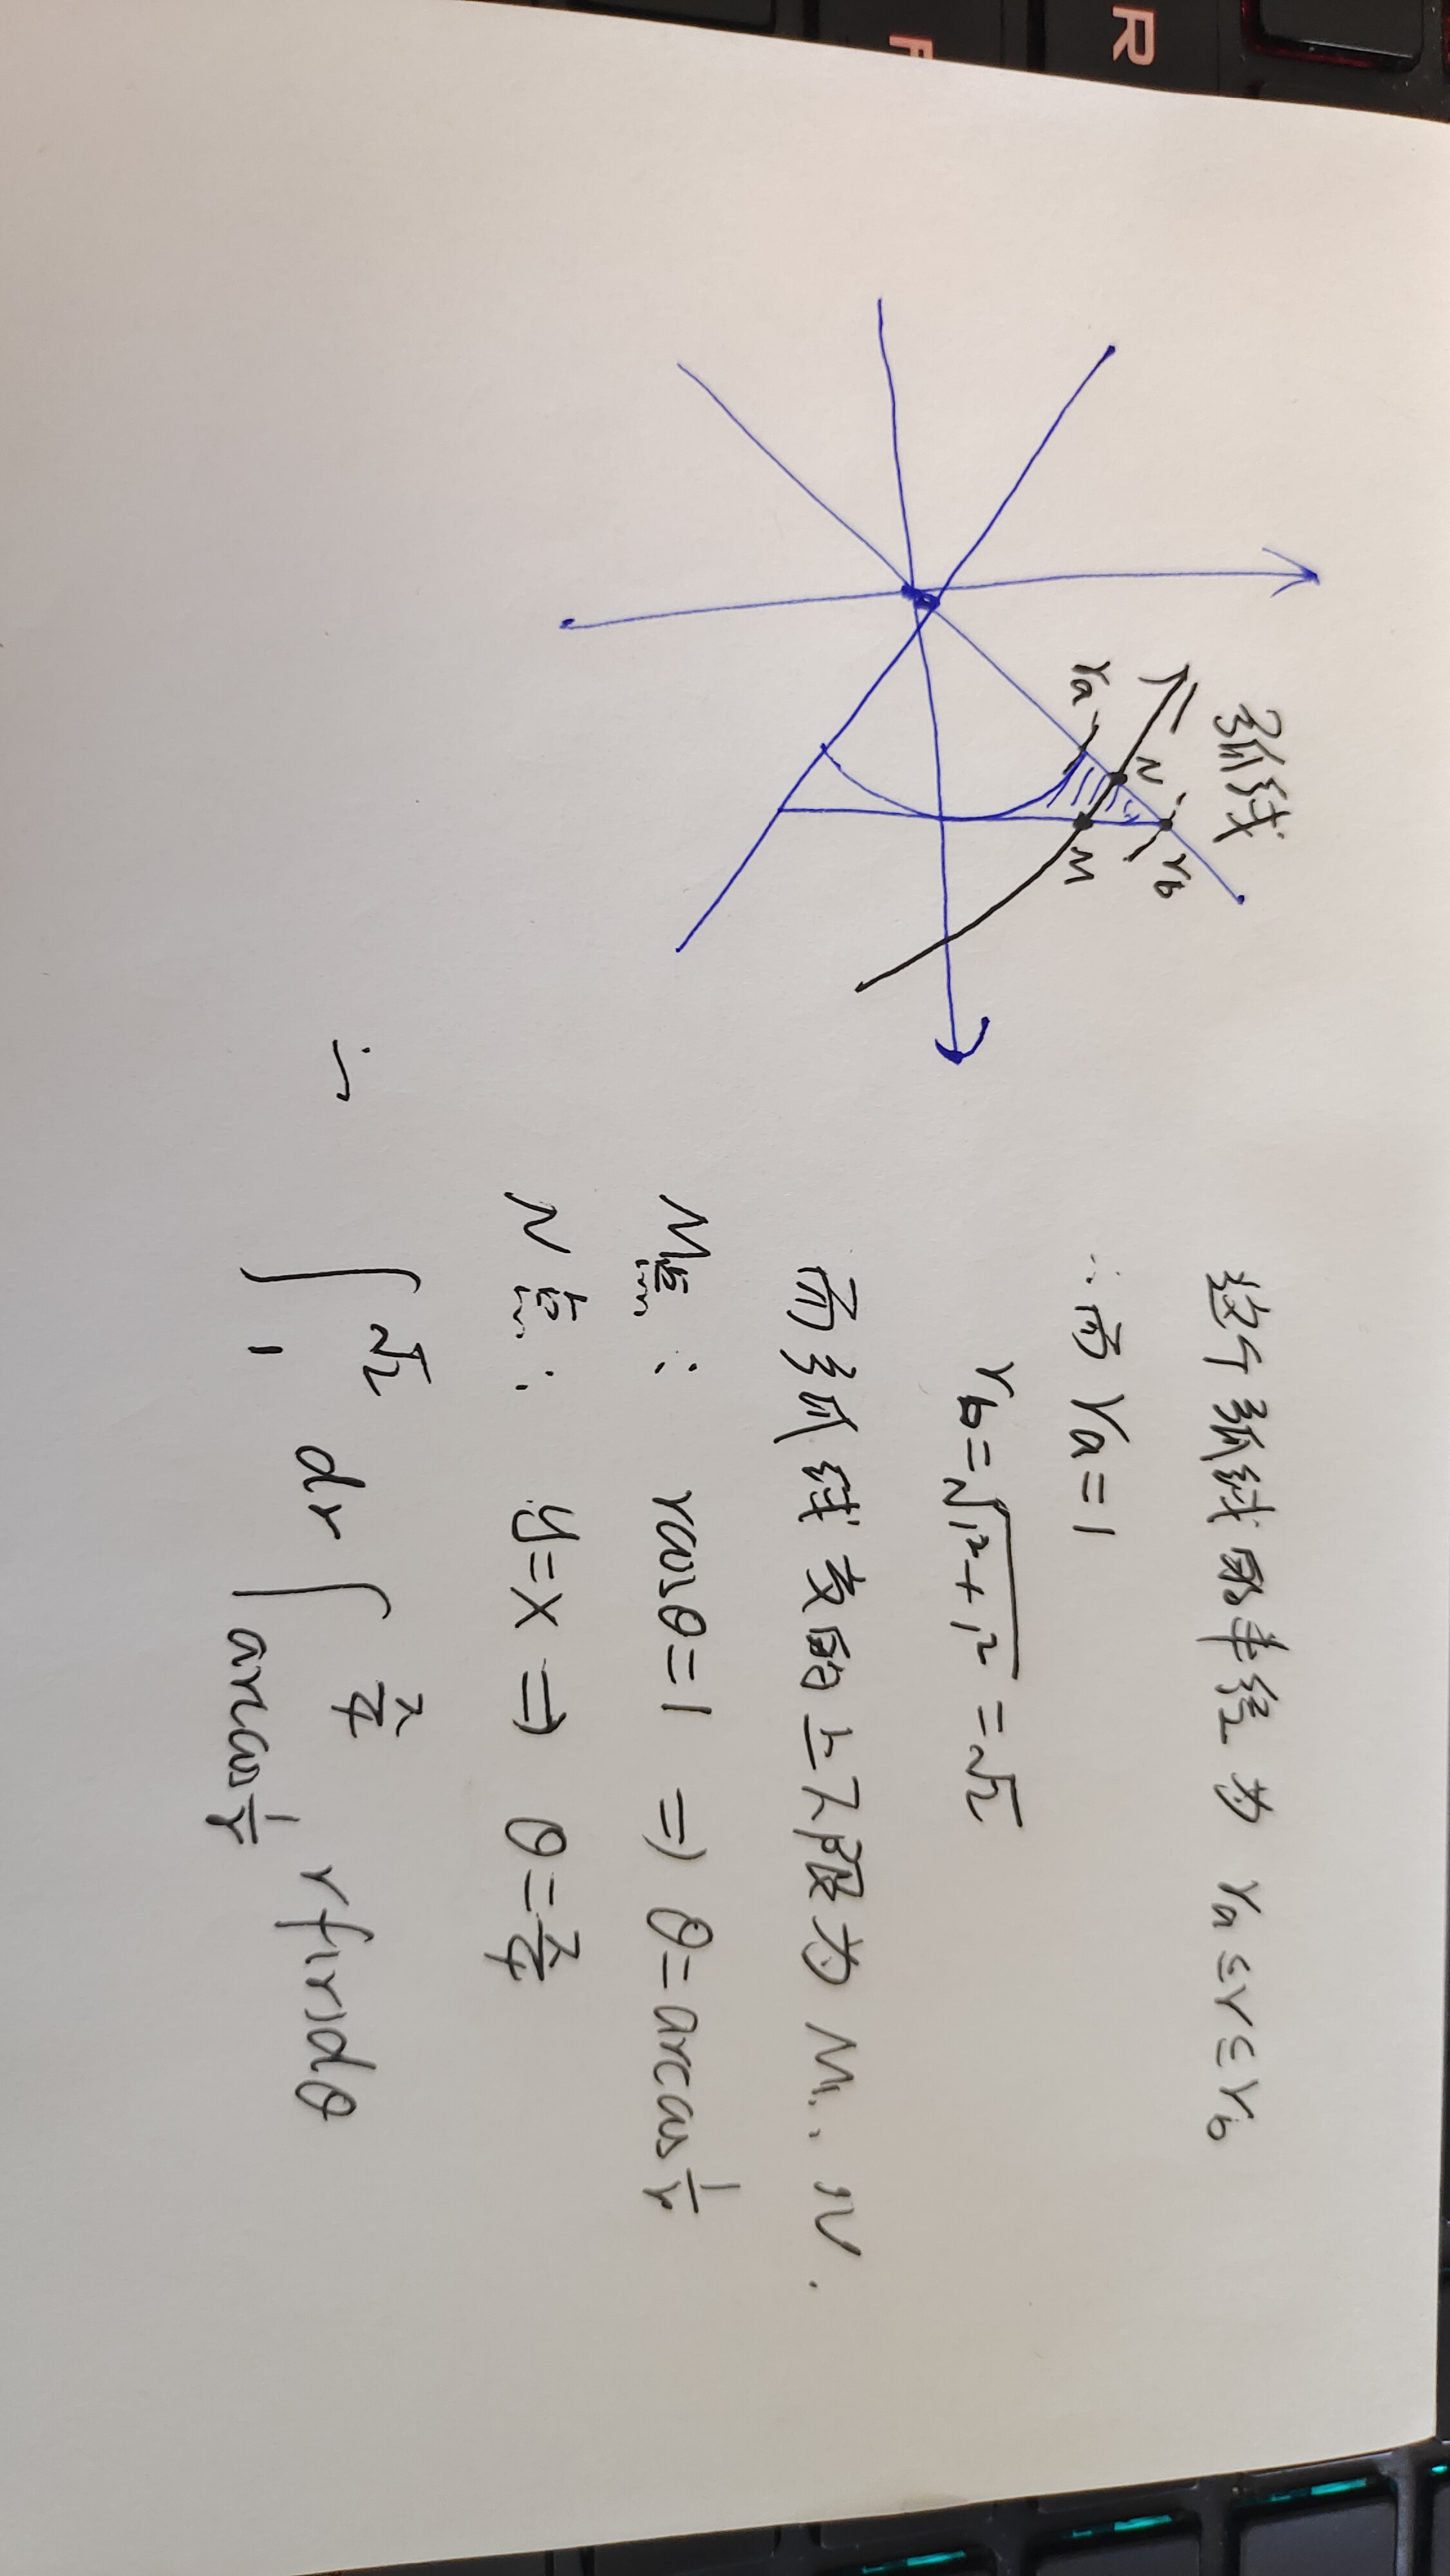 弧线
ra
N
rb
M
这个弧线的半径为 ra≤r≤rb
∴而 ra=1
rb=√1²+1² =√2
而弧线交的上下限为 M、N.
M点: rcosθ=1 ⇒ θ=arccos 1/r
N点: y=x ⇒ θ=π/4
∫₁^√2 dr ∫_{arccos 1/r}^{π/4} rf(r)dθ
R
F